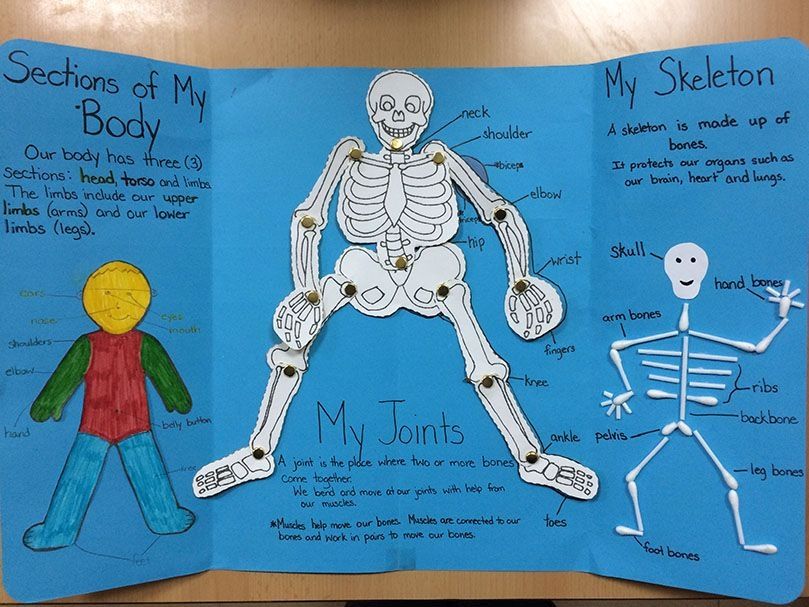 Sections of My
Body
Our body has three (3)
sections: head, torso and limbs.
The limbs include our upper
limbs (arms) and our lower
limbs (legs).
ears
eyes
nose
mouth
shoulders
elbow
hand
belly button
knee
feet
neck
shoulder
*biceps
elbow
triceps
hip
wrist
fingers
knee
ankle
toes
My Joints
A joint is the place where two or more bones
come together.
We bend and move at our joints with help from
our muscles.
*Muscles help move our bones. Muscles are connected to our
bones and work in pairs to move our bones.
My Skeleton
A skeleton is made up of
bones.
It protects our organs such as
our brain, heart and lungs.
skull
hand bones
arm bones
ribs
backbone
pelvis
leg bones
foot bones